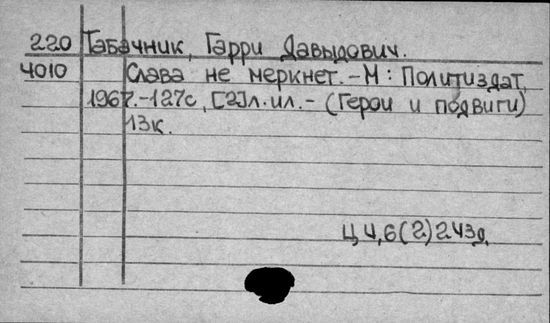 220 Табачник, Гарри Давыдович.
4010 Слава не меркнет. - М: Политиздат,
1967. - 127с, [2]л. ил. - (Герои и подвиги)
13к.
Ц 4,6(2)243д